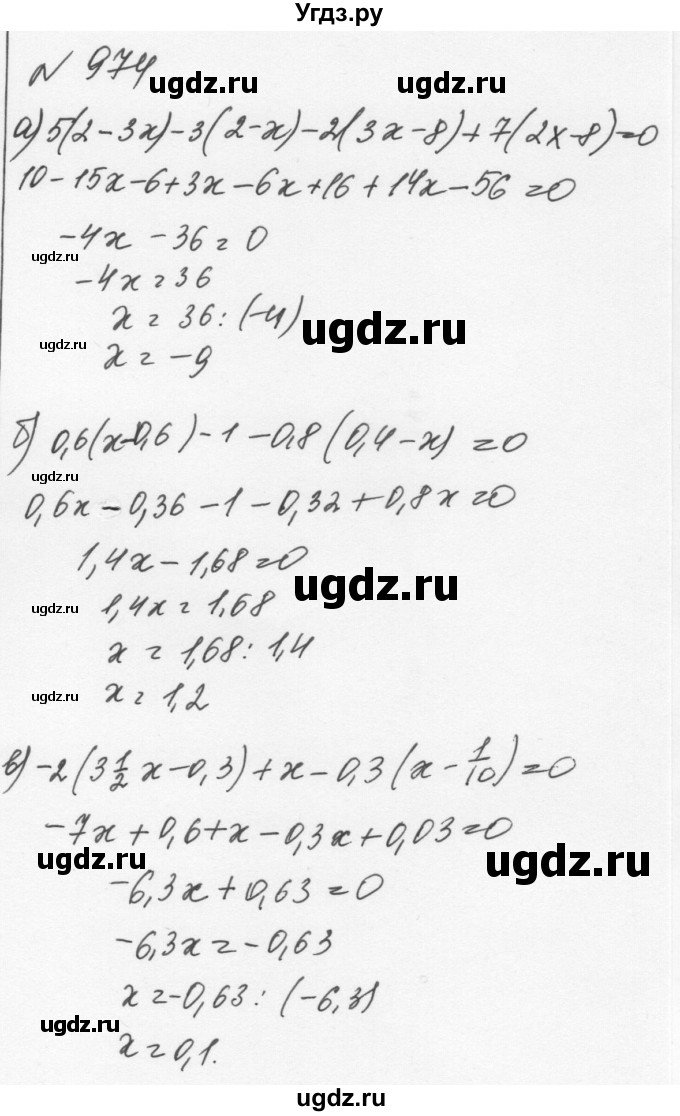 Угдз.ру
N 974
ugdz.ru
а) 5(2-3x)-3(2-x)-2(3x-8)+7(2x-8)=0
10-15x-6+3x-6x+16+14x-56=0
-4x-36=0
ugdz.ru
-4x=36
x=36:(-4)
ugdz.ru
ugdz.ru
x=-9
б) 0,6(x-0,6)-1-0,8(0,4-x)=0
ugdz.ru
0,6x-0,36-1-0,32+0,8x=0
1,4x-1,68=0
ugdz.ru
ugdz.ru
1,4x=1,68
x=1,68:1,4
ugdz.ru
x=1,2
в) -2(3 1/2 x-0,3)+x-0,3(x-1/10)=0
-7x+0,6+x-0,3x+0,03=0
ugdz.ru
ugdz.ru
-6,3x+0,63=0
-6,3x=-0,63
x=-0,63:(-6,3)
ugdz.ru
x=0,1.
ugdz.ru